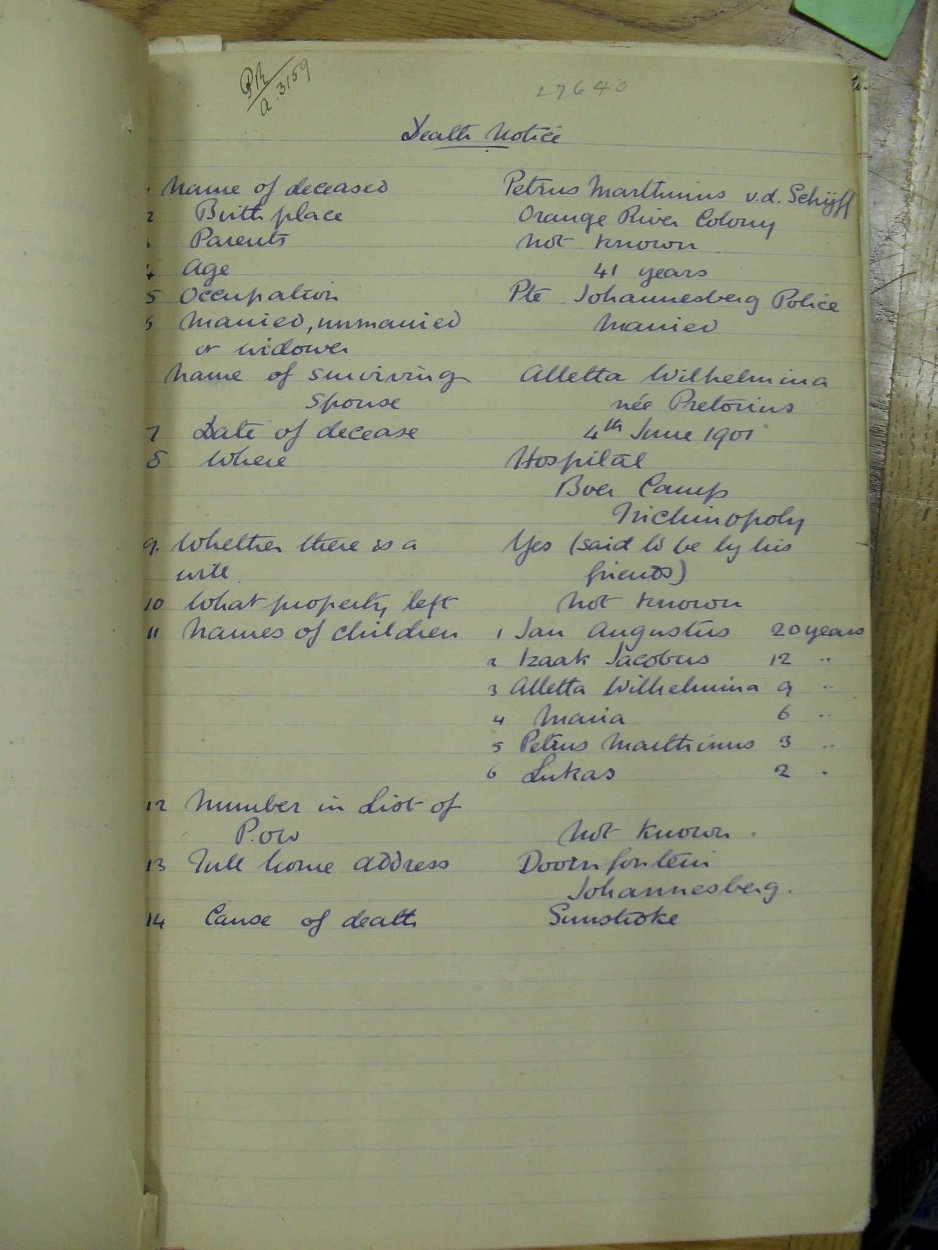 PR
A. 3159
27640
Death Notice
1 Name of deceased Petrus Marthinus v.d. Schyff
2 Birth place Orange River Colony
3 Parents not known
4 Age 41 years
5 Occupation Pte Johannesberg Police
6 Married, unmarried Married
or widower
Name of surviving Alletta Wilhelmina
Spouse née Pretorius
7 Date of decease 4th June 1901
8 Where Hospital
Boer Camp
Trichinopoly
9. Whether there is a Yes (said to be by his
will friends)
10 What property left not known
11 Names of children 1 Jan Augustus 20 years
2 Izaak Jacobus 12 "
3 Alletta Wilhelmina 9 "
4 Maria 6 "
5 Petrus Marthinus 3 "
6 Lukas 2 "
12 Number in List of
P.o.w not known.
13 Full home address Doornfontein
Johannesberg.
14 Cause of death Sunstroke